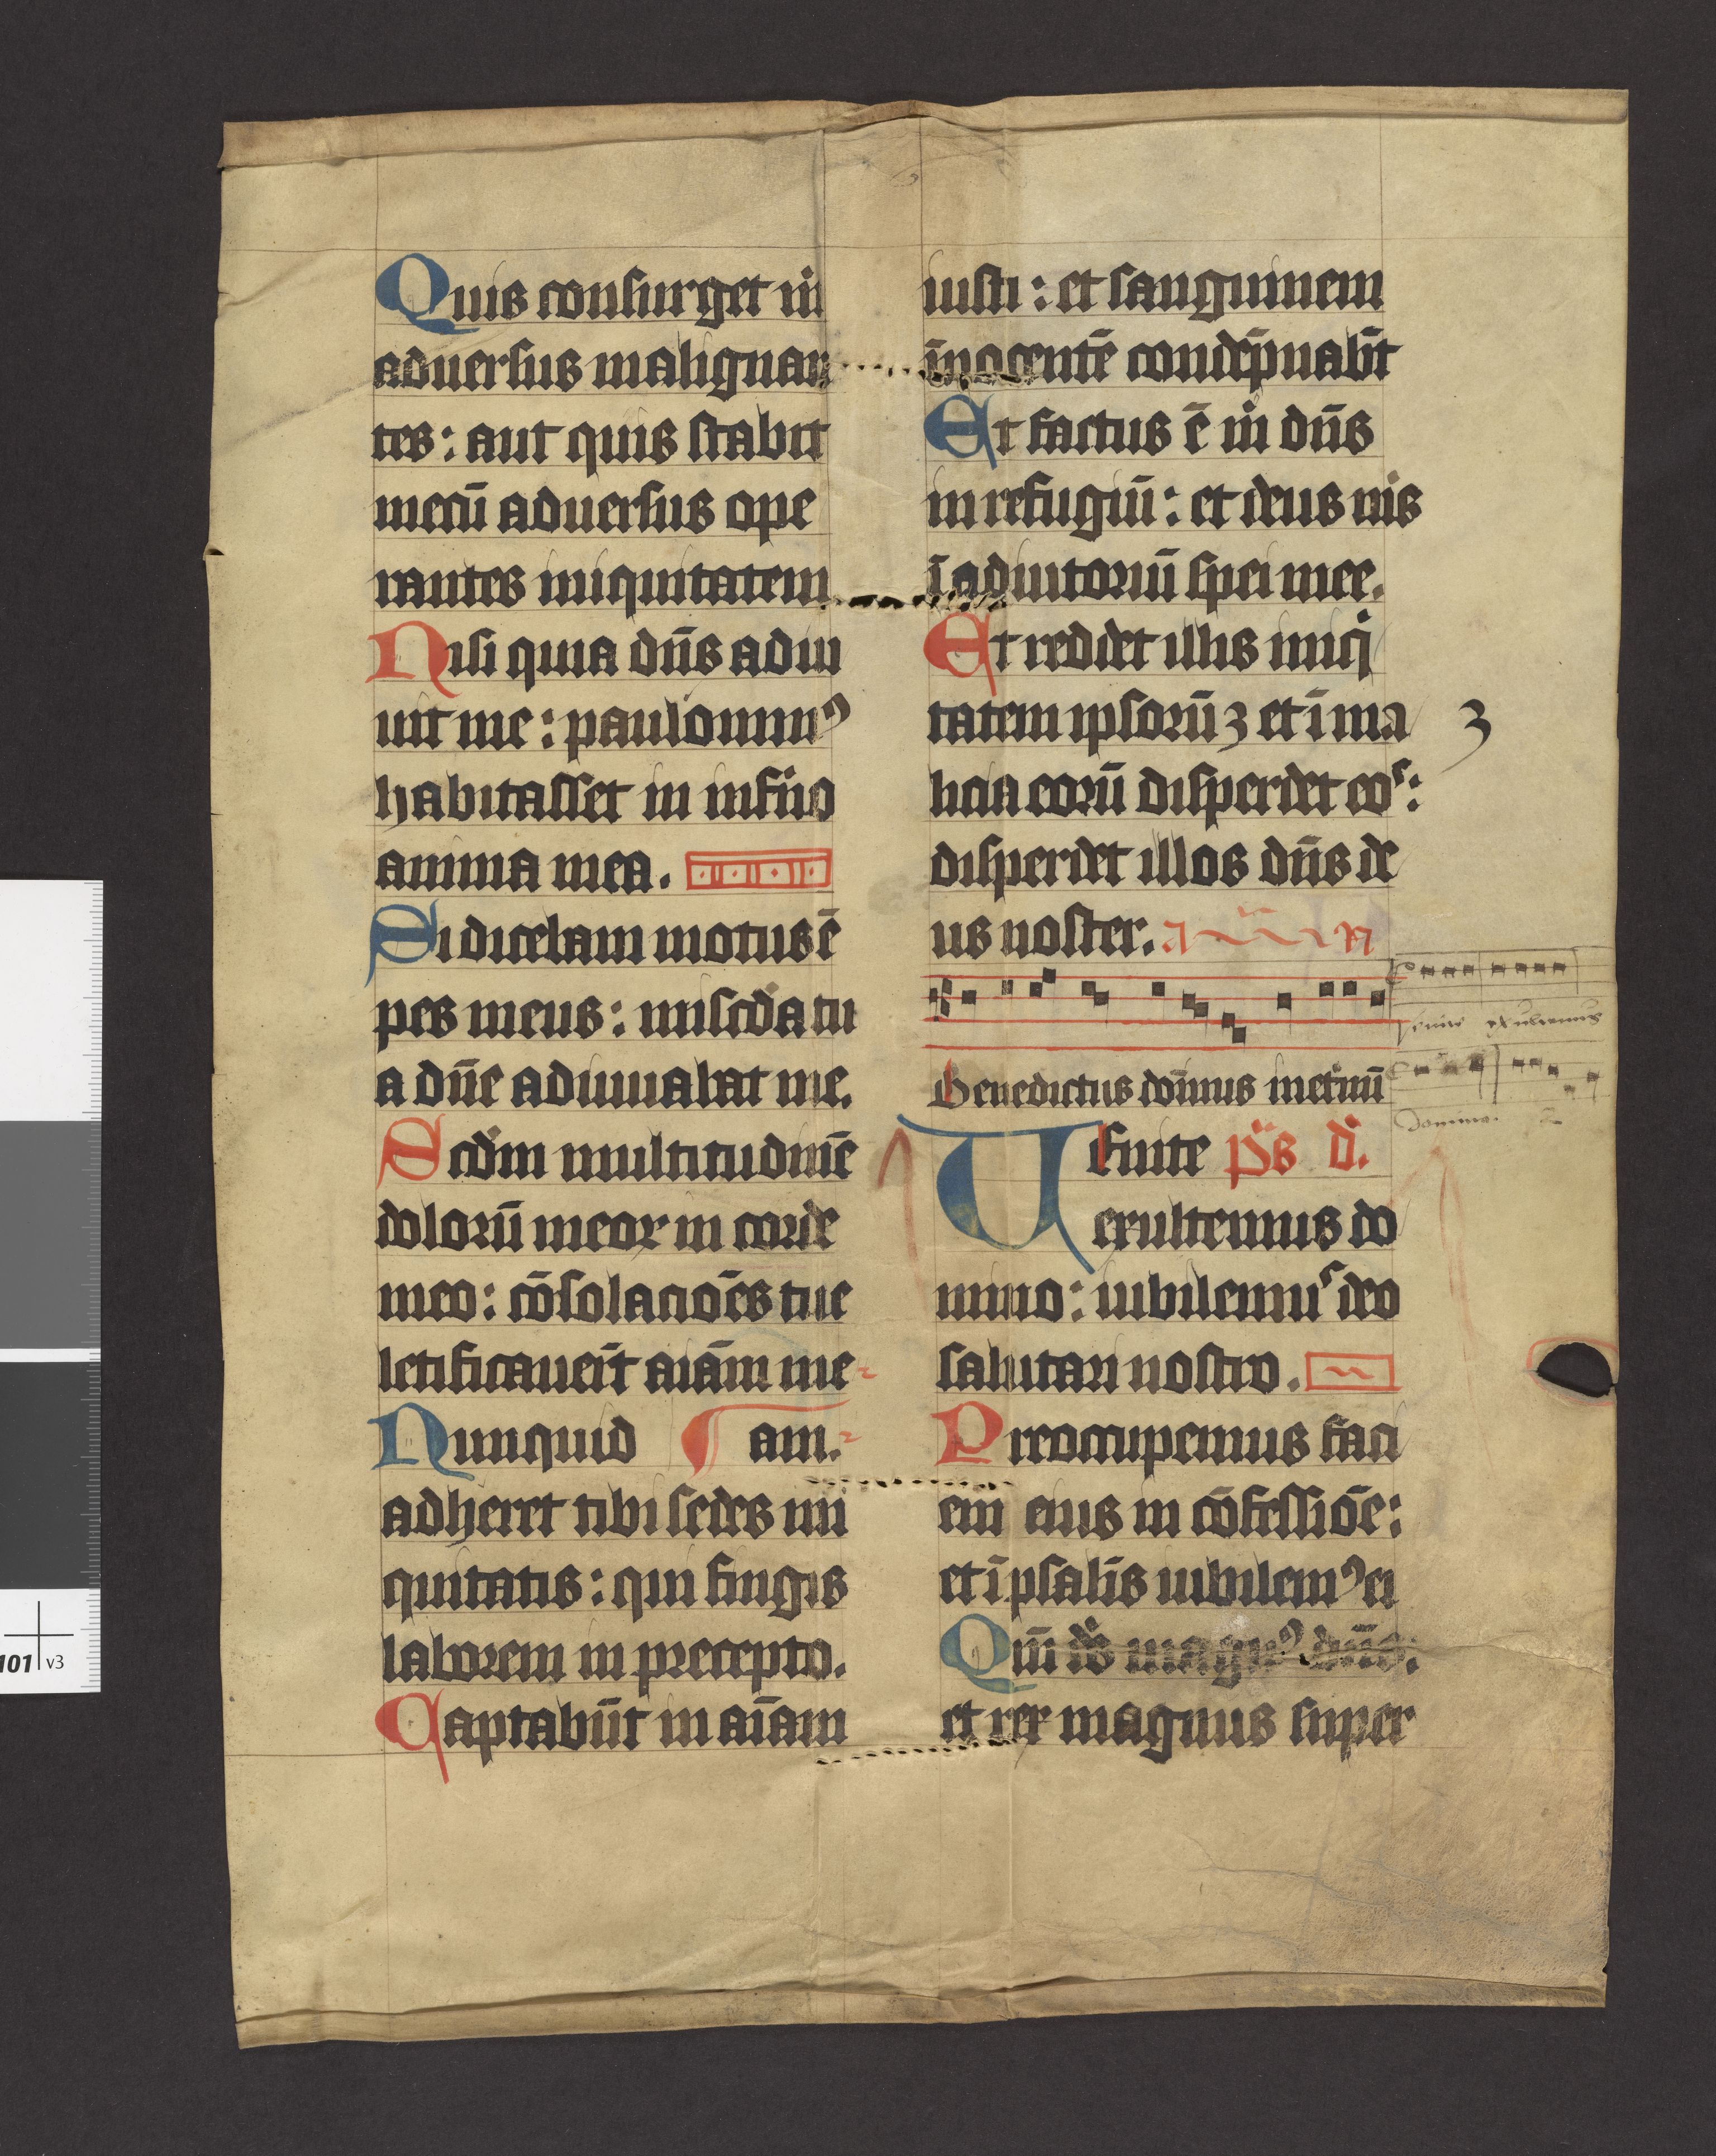 Quis consurget m̄
aduersus malignan
tes: aut quis stabit
mecū aduersus ope
rantes iniquitatem
Nisi quia dn̄s adiu
uit me: paulominꝰ
habitasset in inf̄no
anima mea.
Si dicebam motus ē
pes meus: mis̄cd̄a tu
a dn̄e adiuuabat me.
Scdm multitudinē
dolorū meoꝝ in corde
meo: cōsolacōes tue
letificauer̄t aīam me
Nunquid am.
adheret tibi sedes ini
quitatis: qui fingis
laborem in precepto.
Captabūt in aīam
iusti: et sanguinem
īnocentē condēpnabūt
Et factus ē m̄ dn̄s
in refugiū: et deus mis
ī adiutoriū spei mee.
Et reddet illis iniqi
tatem ipsorū3 et ī ma
licia eorū disperdet eos:
disperdet illos dn̄s de
us noster. A n
3
Benedictus dominus in eternū
Uenite ps̄ d.
exultemus do
mino: iubilemus deo
salutari nostro.
Preoccupemus faci
em eius in cōfessiōe:
et ī psal̄is iubilemꝰ ei
Qm̄ ds̄ magnꝰ dn̄s:
et rex magnus super
Venite exultemus
Domino. 2
101 v3